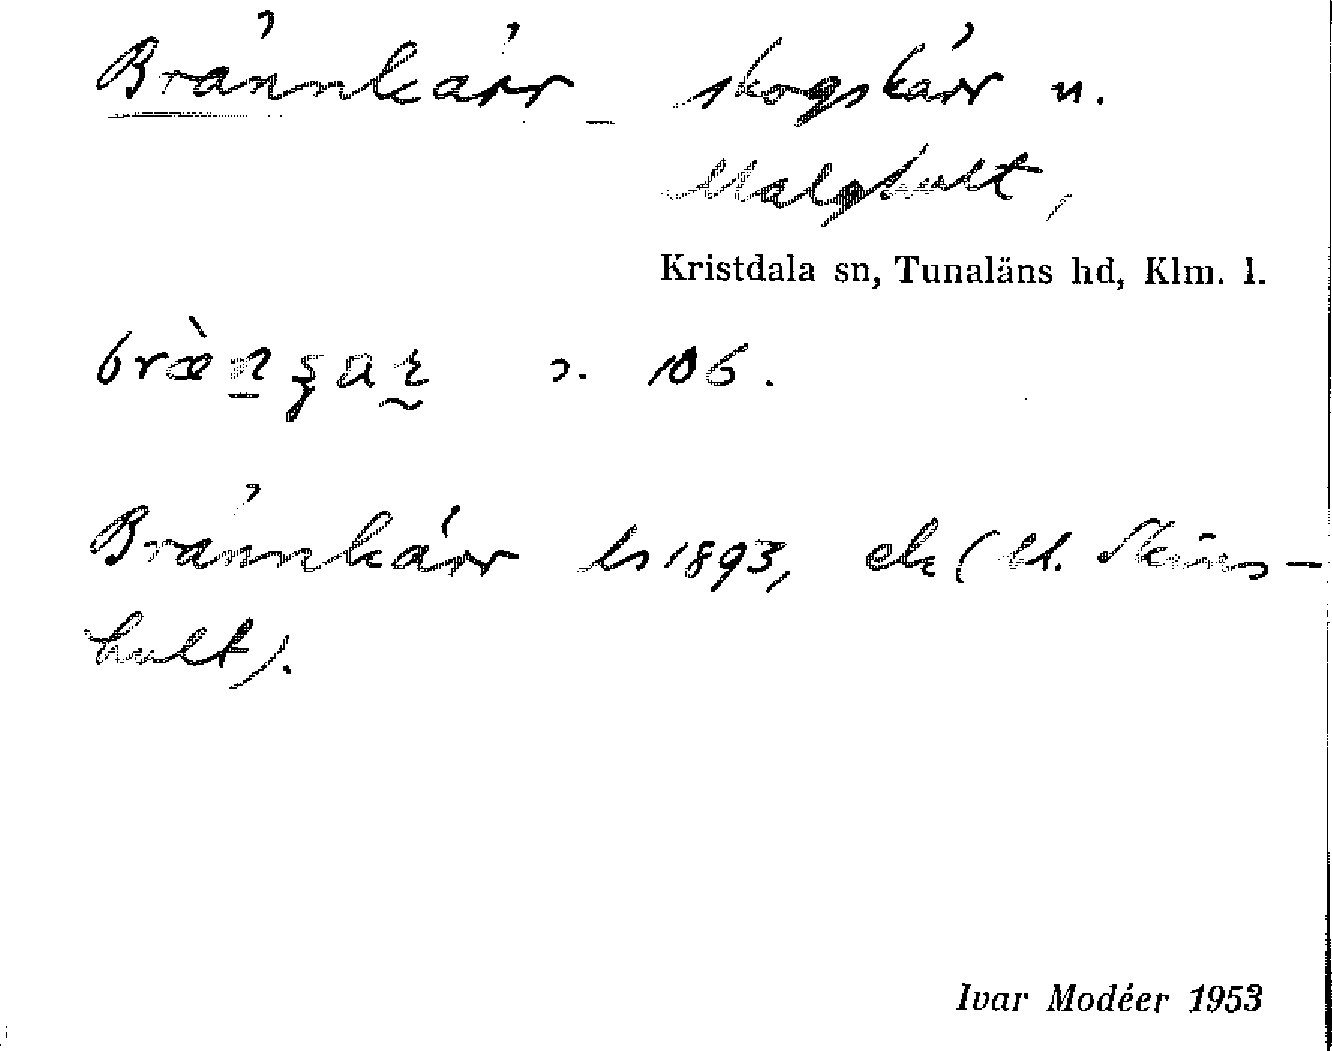 Brännkärr skogskärr n.
Malghult,
Kristdala sn, Tunaläns hd, Klm. l.
106.
Brännkärr ls 1893, ek (
hult).
Ivar Modéer 1953